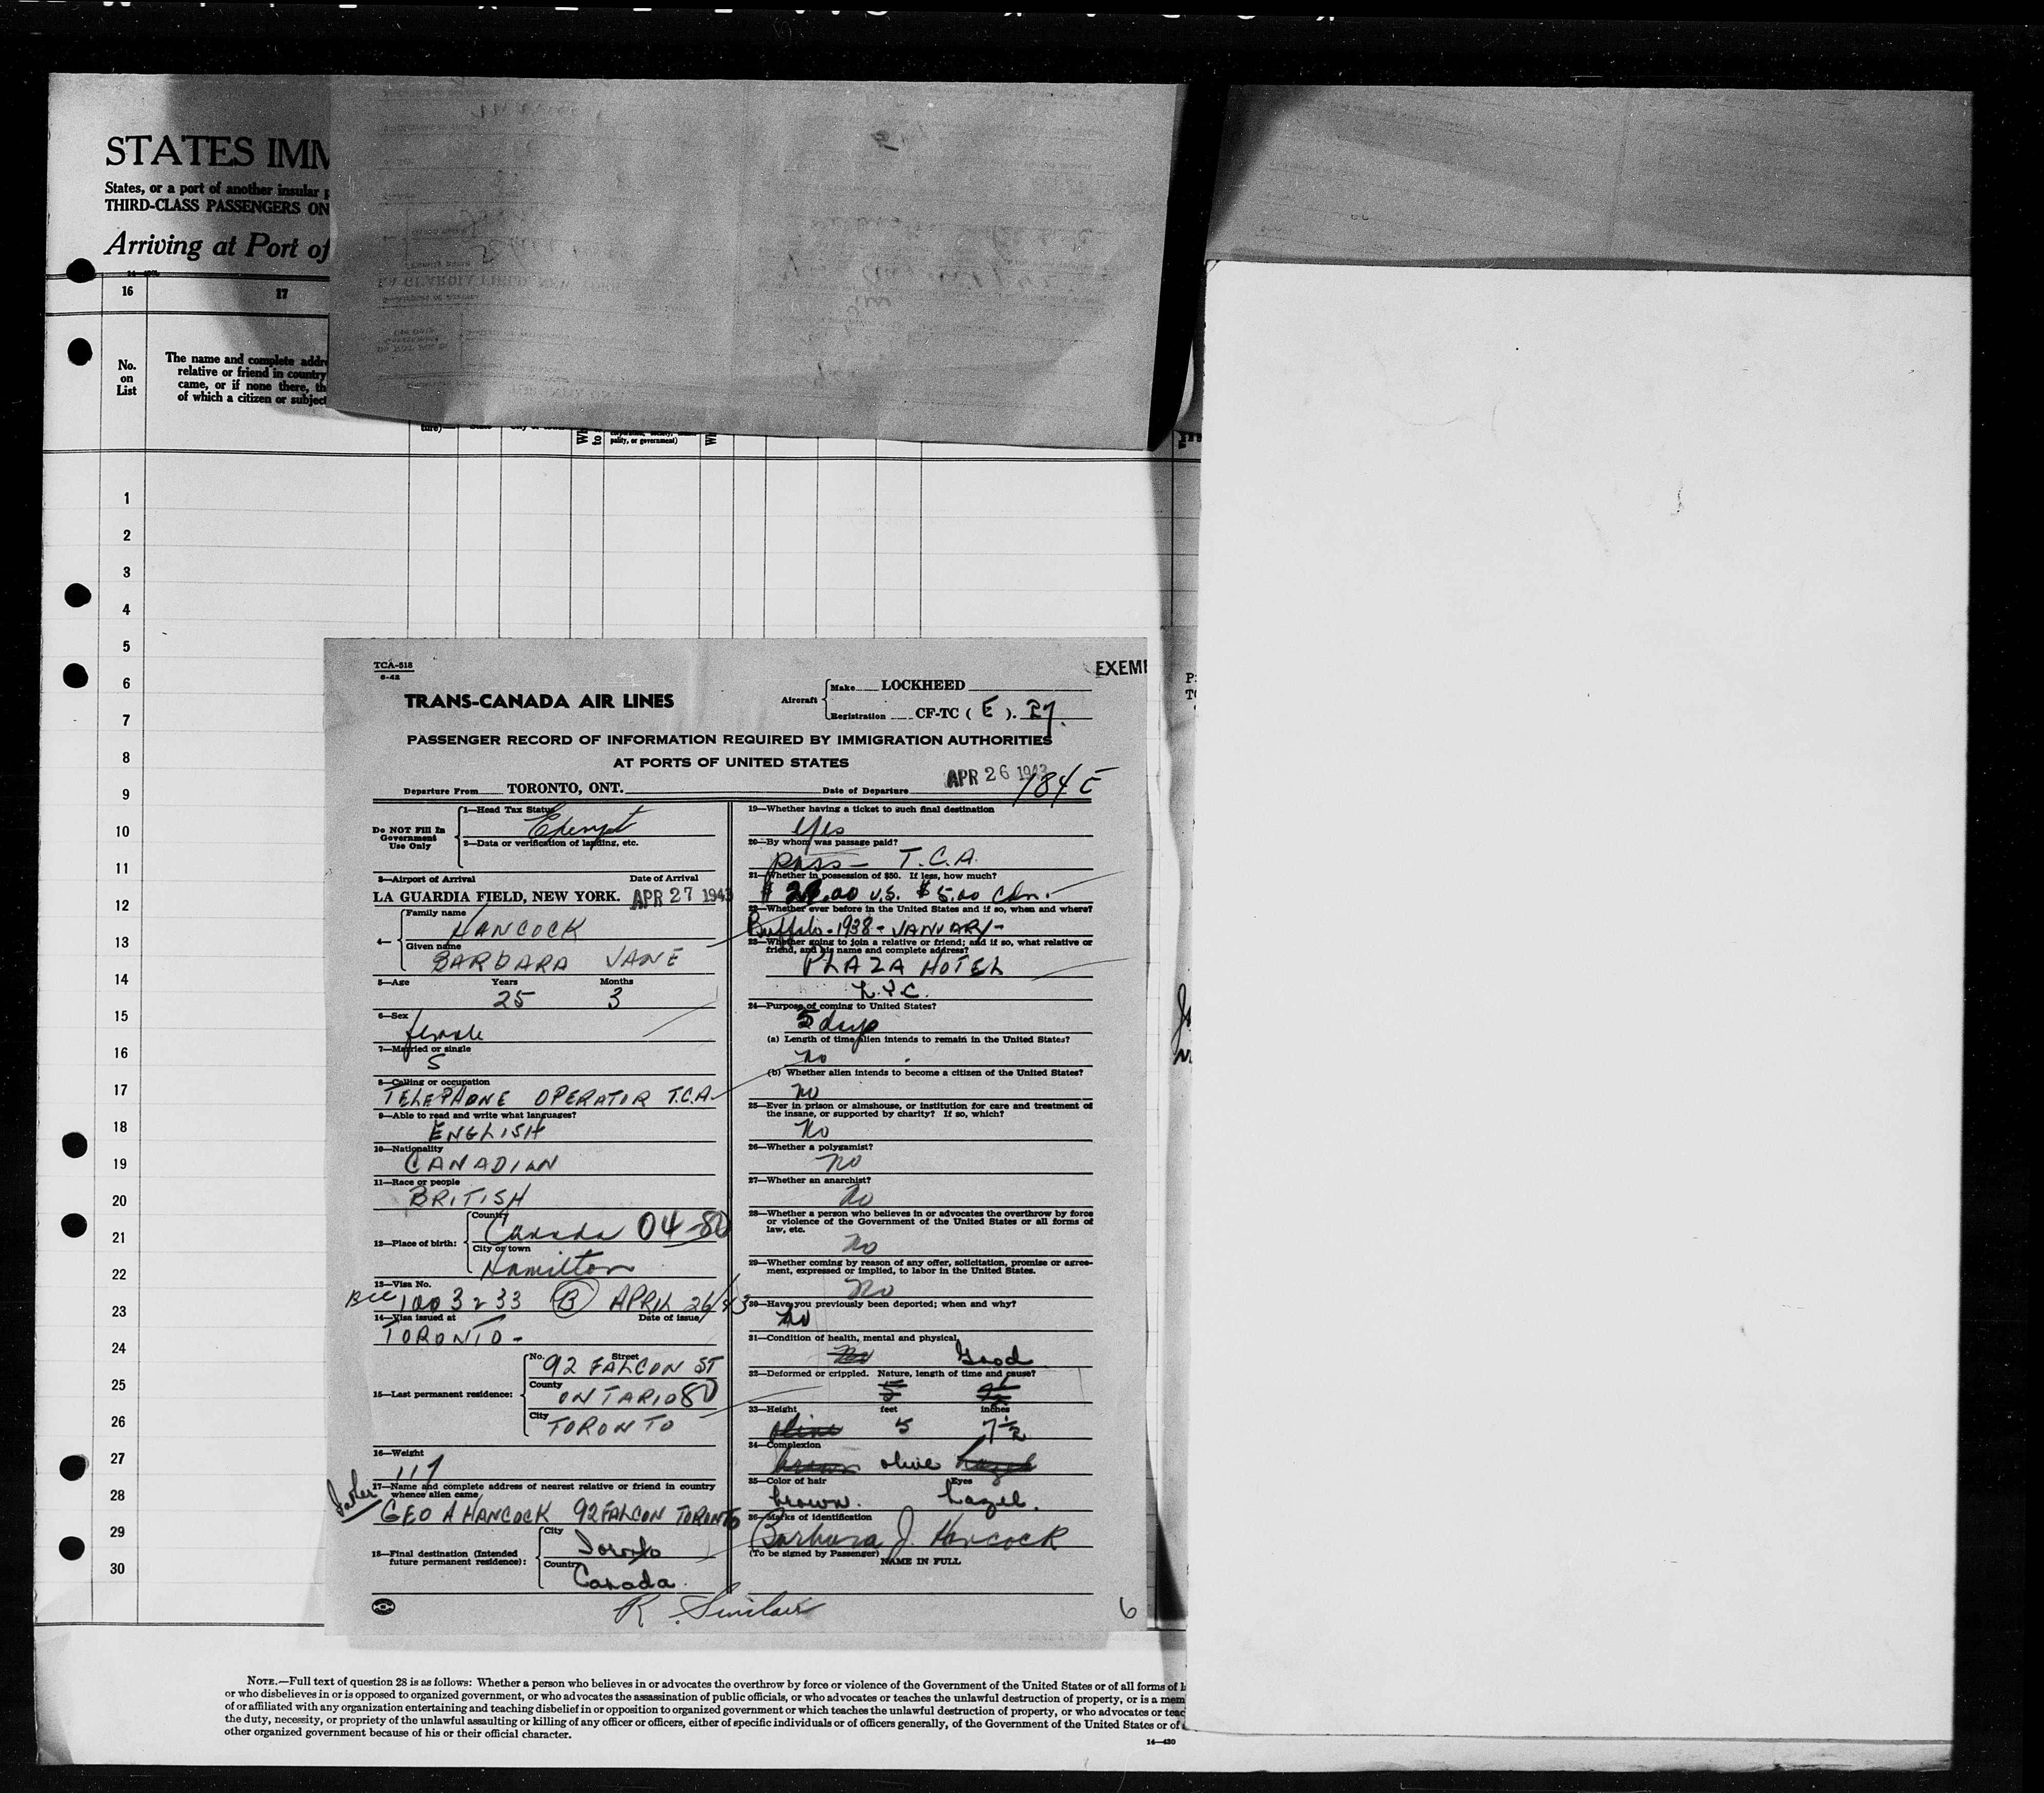 STATES IMM
States, or a port of another insular p
THIRD-CLASS PASSENGERS ON
Arriving at Port of
16
17
No.
on
List
The name and complete addre
relative or friend in country
came, or if none there, th
of which a citizen or subject
ture)
pality, or government)
1
2
3
4
5
6
7
8
9
10
11
12
13
14
15
16
17
18
19
20
21
22
23
24
25
26
27
28
29
30
TCA-518
6-42
EXEM
TRANS-CANADA AIR LINES
Aircraft
Make LOCKHEED
Registration CF-TC ( E ). 27.
PASSENGER RECORD OF INFORMATION REQUIRED BY IMMIGRATION AUTHORITIES
AT PORTS OF UNITED STATES
Departure From TORONTO, ONT. Date of Departure APR 26 1943 184 E
Do NOT Fill In
Government
Use Only
1—Head Tax Status
Exempt
2—Data or verification of landing, etc.
3—Airport of Arrival Date of Arrival
LA GUARDIA FIELD, NEW YORK. APR 27 1943
4—
Family name
HANCOCK
Given name
BARBARA JANE
5—Age Years Months
25 3
6—Sex
female
7—Married or single
S
8—Calling or occupation
TELEPHONE OPERATOR T.C.A.
9—Able to read and write what languages?
ENGLISH
10—Nationality
CANADIAN
11—Race or people
BRITISH
12—Place of birth:
Country
Canada 04-80
City or town
Hamilton
13—Visa No.
BCC 1003233 B APRIL 26/43
14—Visa issued at Date of issue
TORONTO -
15—Last permanent residence:
No. Street
92 FALCON ST
County
ONTARIO 80
City
TORONTO
16—Weight
117
17—Name and complete address of nearest relative or friend in country
whence alien came
GEO A HANCOCK 92 FALCON TORONTO
18—Final destination (Intended
future permanent residence):
City
Toronto
Country
Canada.
19—Whether having a ticket to such final destination
yes
20—By whom was passage paid?
pass - T.C.A.
21—Whether in possession of $50. If less, how much?
U.S. $5.00 Cdn.
22—Whether ever before in the United States and if so, when and where?
Buffalo - 1938 - JANUARY -
23—Whether going to join a relative or friend; and if so, what relative or
friend, and his name and complete address?
PLAZA HOTEL
N.Y.C.
24—Purpose of coming to United States?
5 days
(a) Length of time alien intends to remain in the United States?
no
(b) Whether alien intends to become a citizen of the United States?
no
25—Ever in prison or almshouse, or institution for care and treatment of
the insane, or supported by charity? If so, which?
No
26—Whether a polygamist?
no
27—Whether an anarchist?
no
28—Whether a person who believes in or advocates the overthrow by force
or violence of the Government of the United States or all forms of
law, etc.
no
29—Whether coming by reason of any offer, solicitation, promise or agree-
ment, expressed or implied, to labor in the United States.
no
30—Have you previously been deported; when and why?
no
31—Condition of health, mental and physical
Good
32—Deformed or crippled. Nature, length of time and cause?
33—Height feet inches
5 7 1/2
34—Complexion
brown olive hazel
35—Color of hair Eyes
brown. hazel.
36—Marks of identification
Barbara J. Hancock
(To be signed by Passenger)
NAME IN FULL
R. Sinclair
6
NOTE.—Full text of question 28 is as follows: Whether a person who believes in or advocates the overthrow by force or violence of the Government of the United States or of all forms of l
or who disbelieves in or is opposed to organized government, or who advocates the assassination of public officials, or who advocates or teaches the unlawful destruction of property, or is a mem
of or affiliated with any organization entertaining and teaching disbelief in or opposition to organized government or which teaches the unlawful destruction of property, or who advocates or teac
the duty, necessity, or propriety of the unlawful assaulting or killing of any officer or officers, either of specific individuals or of officers generally, of the Government of the United States or of
other organized government because of his or their official character.
14—430